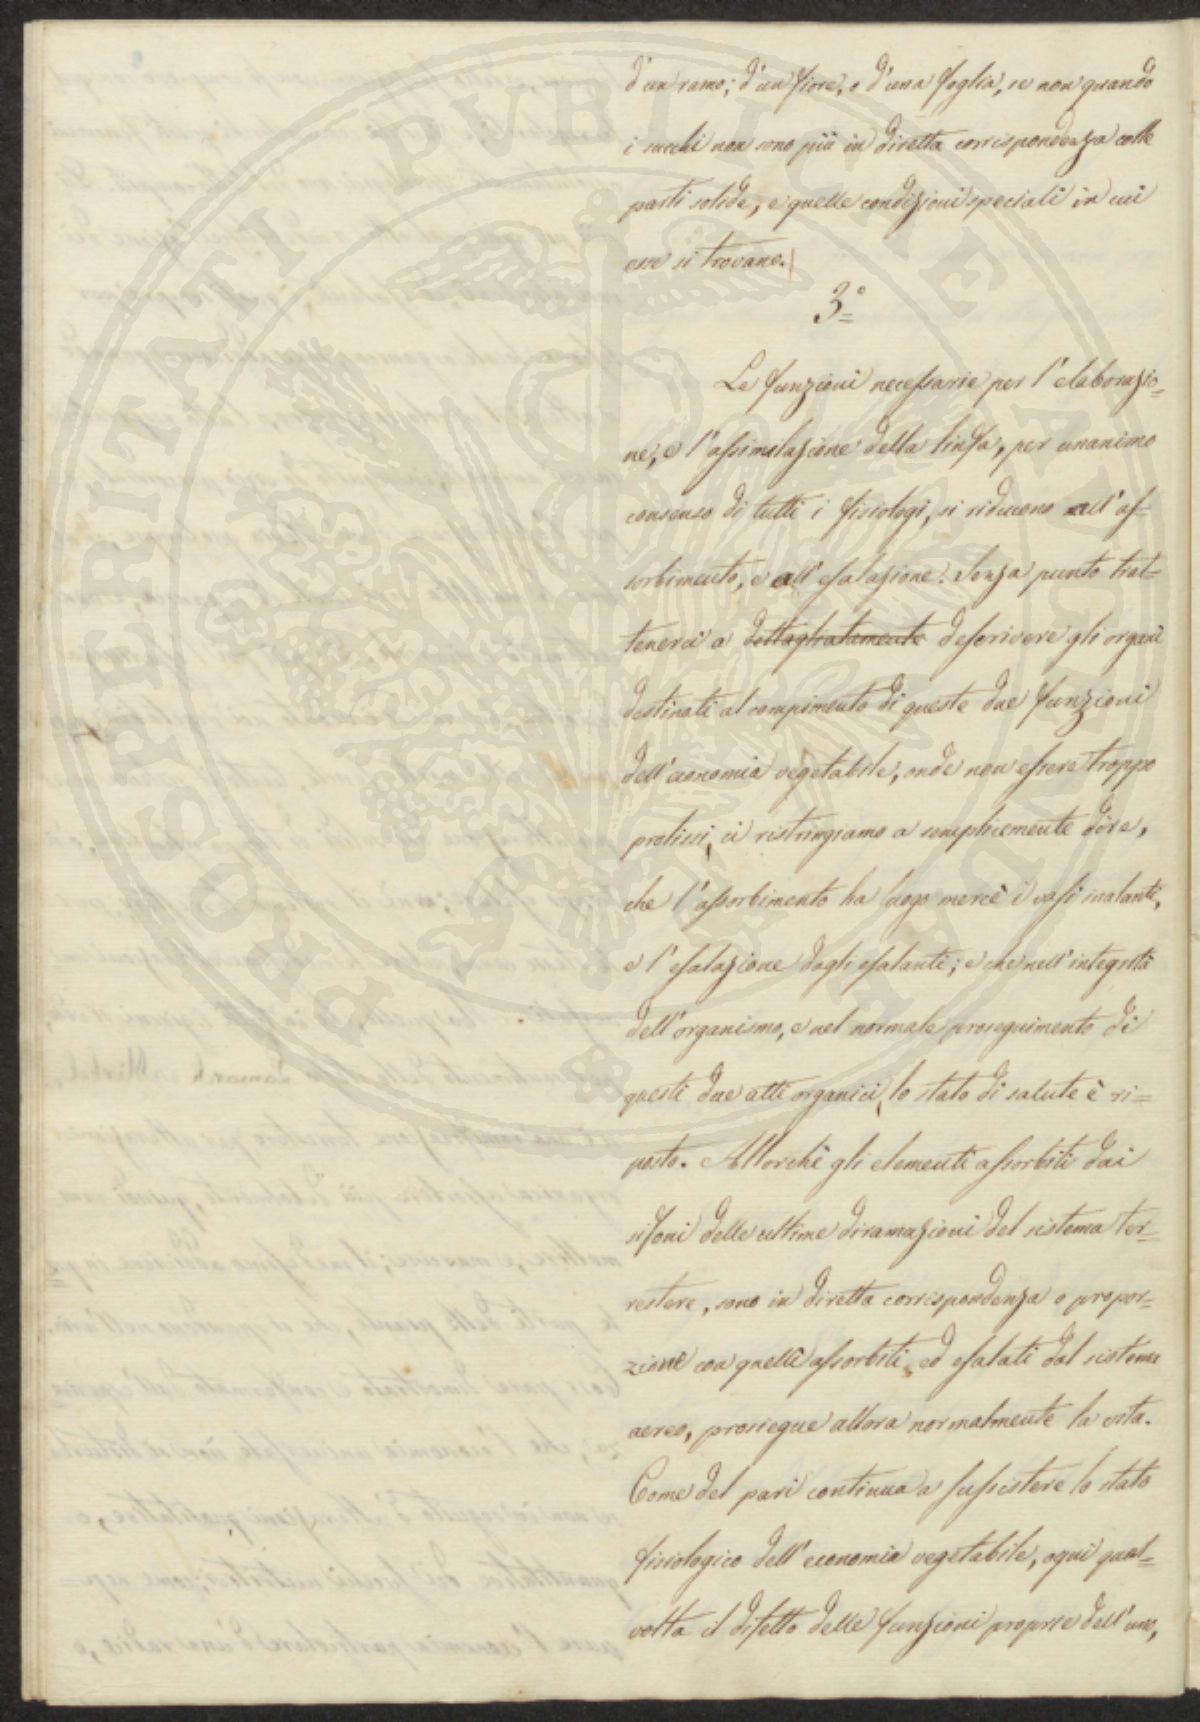 d'un ramo; d'un fiore, o d'una foglia, se non quando
i succhi non sono più in diretta corrispondenza colle
parti solide, e quelle condizioni speciali in cui
esse si trovano.
3º
Le funzioni necessarie per l'elaborazio=
ne, e l'assimilazione della linfa, per unanimo
consenso di tutti i fisiologi, si riducono all'as=
sorbimento, e all'esalazione. Senza punto trat=
tenerci a dettagliatamente descrivere gli organi
destinati al compimento di queste due funzioni
dell'economia vegetabile, onde non essere troppo
prolissi, ci ristringiamo a semplicemente dire,
che l'assorbimento ha luogo mercè i vasi inalanti,
e l'esalazione dagli esalanti; e che nell'integrità
dell'organismo, e nel normale proseguimento di
questi due atti organici, lo stato di salute è ri=
posto. Allorchè gli elementi assorbiti dai
sifoni delle ultime diramazioni del sistema ter=
restere, sono in diretta corrispondenza o propor=
zione con quelli assorbiti, ed esalati dal sistema
aereo, prosiegue allora normalmente la vita.
Come del pari continua a sussistere lo stato
fisiologico dell'economia vegetabile, ogni qual=
volta il difetto delle funzioni proprie dell'uno,
PROSPERITATI PUBLICAE AUGENDAE